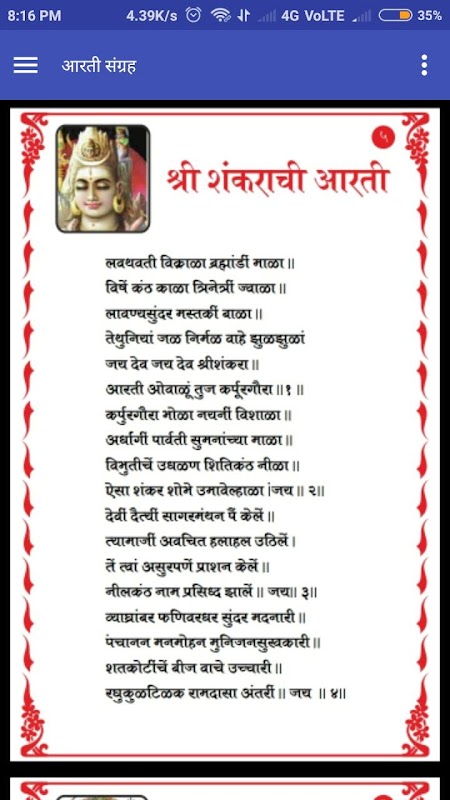 8:16 PM 4.39K/s 4G VoLTE 35%
आरती संग्रह
५
श्री शंकराची आरती
लवथवती विक्राळा ब्रह्मांडीं माळा॥
विषें कंठ काळा त्रिनेत्रीं ज्वाळा॥
लावण्यसुंदर मस्तकीं बाळा॥
तेथुनियां जळ निर्मळ वाहे झुळझुळां
जय देव जय देव श्रीशंकरा॥
आरती ओवाळूं तुज कर्पूरगौरा॥१॥
कर्पुरगौरा भोळा नयनीं विशाळा॥
अर्धांगीं पार्वती सुमनांच्या माळा॥
विभुतीचें उधळण शितिकंठ नीळा॥
ऐसा शंकर शोभे उमावेल्हाळा।जय॥ २॥
देवीं दैत्यीं सागरमंथन पैं केलें॥
त्यामाजीं अवचित हलाहल उठिलें।
तें त्वां असुरपणें प्राशन केलें॥
नीलकंठ नाम प्रसिध्द झालें॥ जय॥ ३॥
व्याघ्रांबर फणिवरधर सुंदर मदनारी॥
पंचानन मनमोहन मुनिजनसुखकारी॥
शतकोटींचें बीज वाचे उच्चारी॥
रघुकुळटिळक रामदासा अंतरीं॥ जय ॥ ४॥